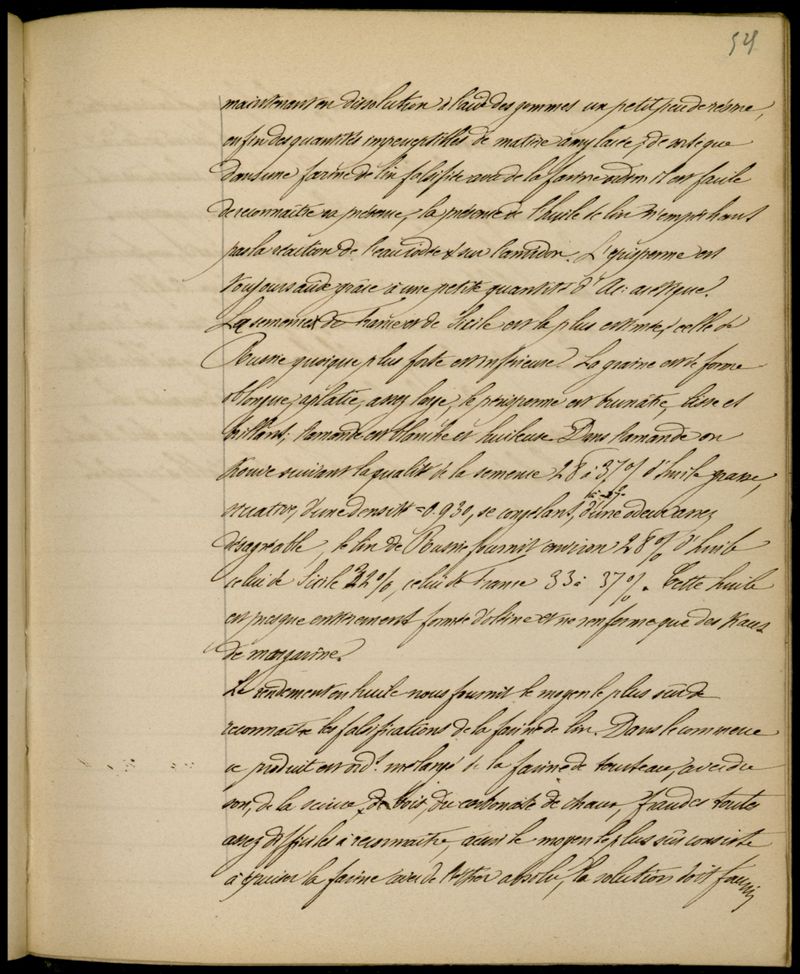 54
maintenant en dissolution à l'aide des gommes un petit peu de résine,
enfin des quantités imperceptibles de matière amylacée; de sorte que
dans une farine de lin falsifiée avec de la farine amidon il est facile
de reconnaître sa présence, la présence de l'huile de lin n'empêchant
pas la réaction de l'eau iodée sur l'amidon. L'épisperme est
toujours acide grâce à une petite quantité d'Ac: acétique.
La semence de France et de Sicile est la plus estimée, celle de
Russie quoique plus forte est inférieure. La graine est de forme
oblongue, aplatie, assez large, le périsperme est brunâtre, lisse et
brillant; l'amande est blanche et huileuse. Dans l'amande on
trouve suivant la qualité de la semence 28 à 37% d'huile grasse,
siccative, d'une densité = 0.930, se congelant, d'une odeur assez
désagréable, le lin de Russie fournit environ 28% d'huile
celui de Sicile 32%, celui de France 33 à 37%. Cette huile
est presque entièrement formée d'oléine et ne renferme que des traces
de margarine.
Le rendement en huile nous fournit le moyen le plus sûr de
reconnaître les falsifications de la farine de lin. Dans le commerce
ce produit est ord.t mélangé de la farine de tourteau, avec du
son, de la sciure de bois, du carbonate de chaux, fraudes toutes
assez difficiles à reconnaître, aussi le moyen le plus sûr consiste
à épuiser la farine avec de l'éther absolu, la solution doit fournir